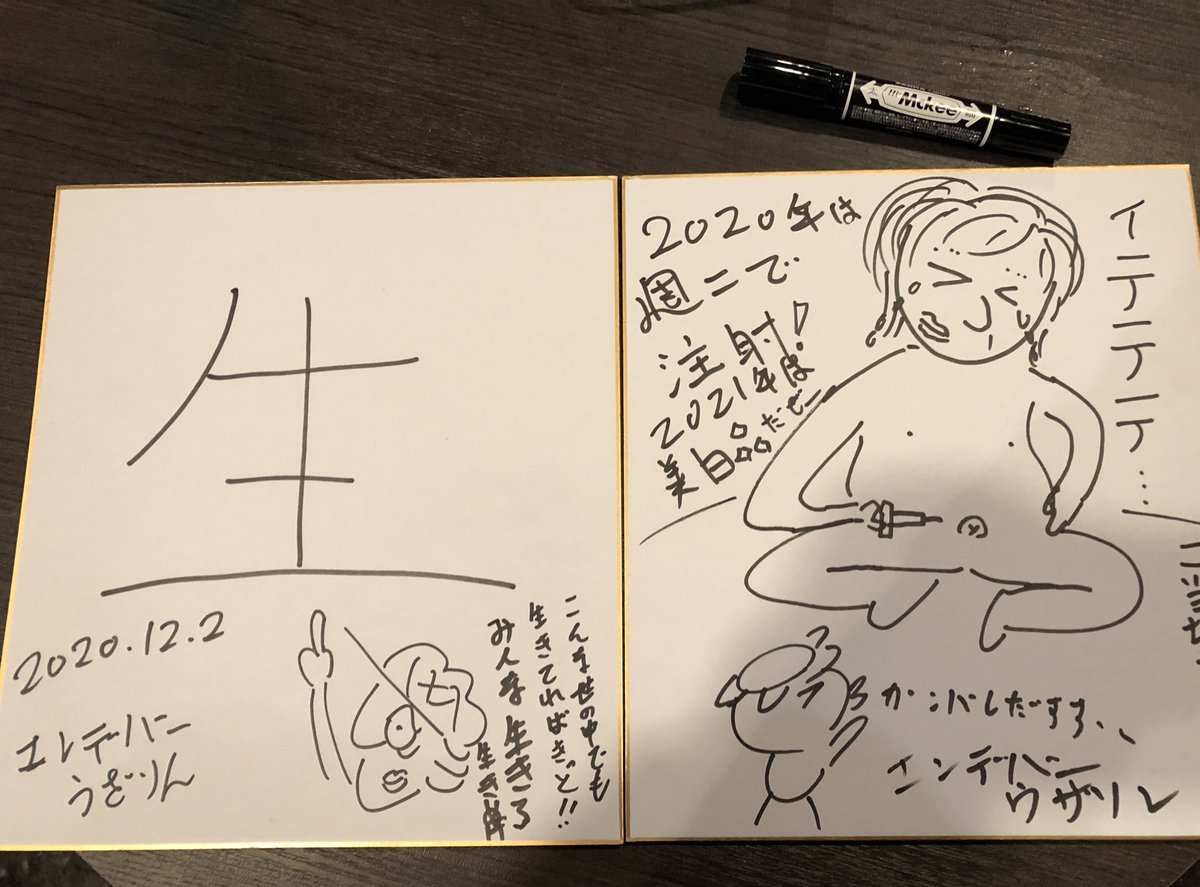 生
2020.12.2
エンデバー
うざりん
こんな世の中でも
生きてればきっと!!
みんな生きろ
生き
2020年は
週二で
注射!
2021年は
美白だぜー
イテテテテ...
ガンバしだすす、、
インデバー
ウザリン
Mckee